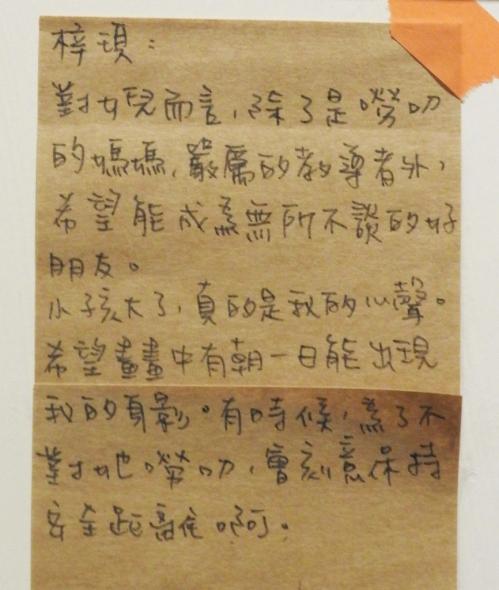 梓瑱：
對女兒而言，除了是嘮叨
的媽媽，嚴厲的教導者外，
希望能成為無所不談的好
朋友。
小孩大了，真的是我的心聲。
希望畫畫中有朝一日能出現
我的身影。有時候，為了不
對她嘮叨，會刻意保持
安全距離啊。